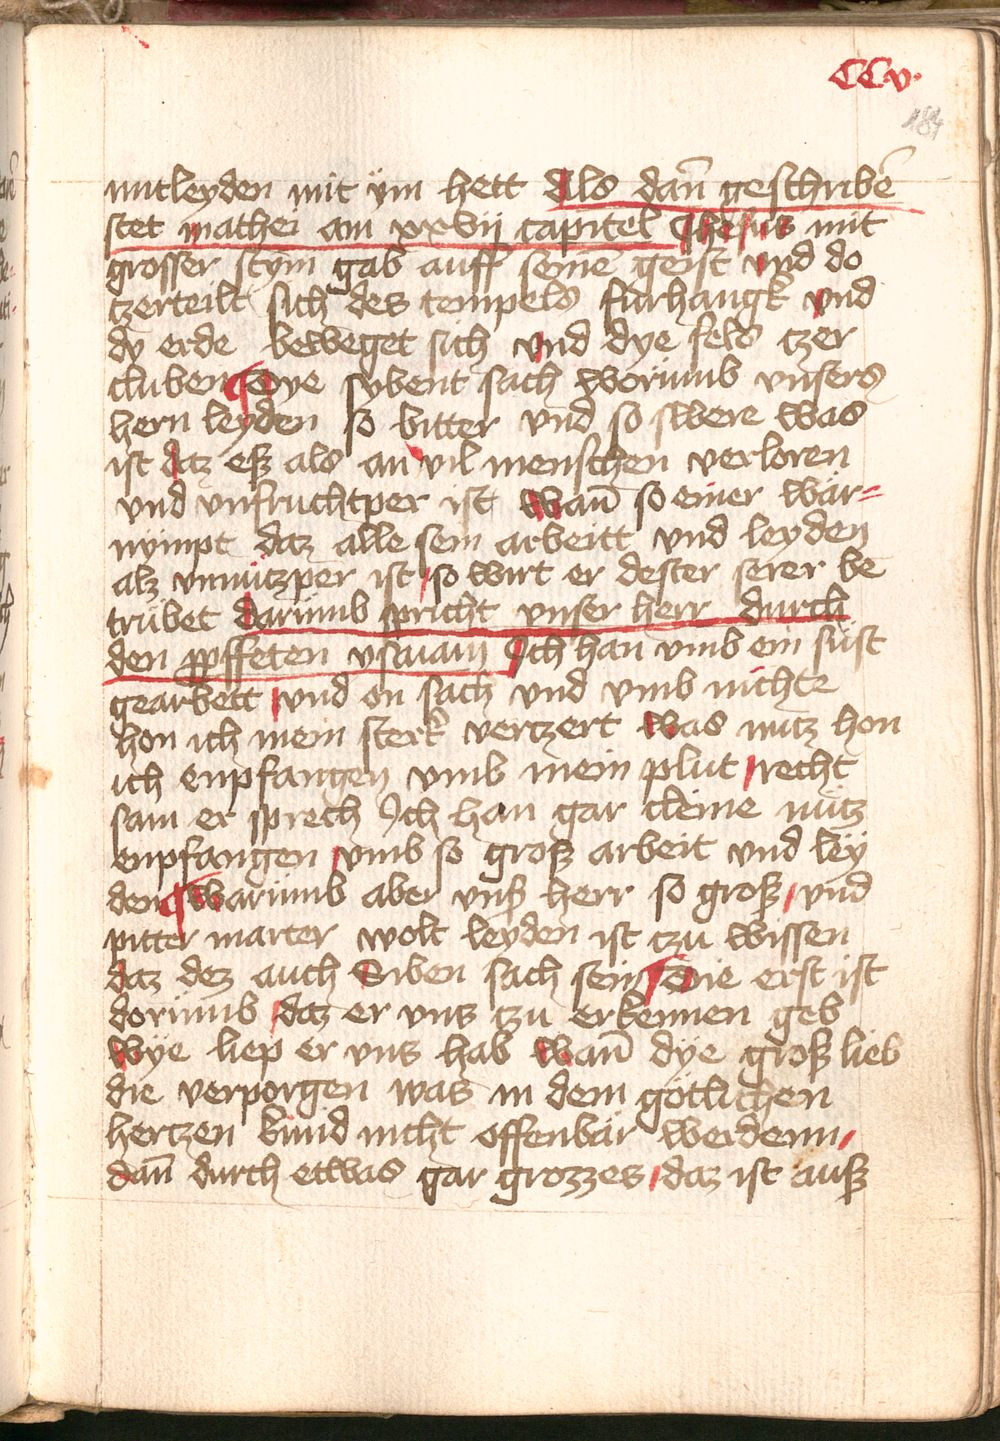 CCv.
184
mitleyden mit ÿm hett Als dan̄ geschribē
stet mathei am xxvij capitel Jhesus mit
grosser stym gab auff seinē geist vnd do
tzerteilt sich des tempels fürhangk vnd
dy erde beweget sich vnd dye fels tzer
cluben Dye sybent sach worümb vnsers
hern leyden so bitter vnd so swere was
ist daz eß als an vil menschen verloren
vnd vnfruchtper ist wan̄ so einer wär=
nympt daz alle sein arbeitt vnd leyden
alz vnnützper ist so wirt er dester serer be
trübet darümb spricht vnser herr durch
den ppffeten ysaiam Ich han vmb ein süst
gearbett vnd on sach vnd vmb nichte
hon ich mein sterk vertzert was nutz hon
ich enpfangen vmb mein plut recht
sam er sprech Ich han gar cleine nütz
enpfangen vmb so groß arbeit vnd ley
den Warümb aber vnß herr so groß vnd
pitter marter wolt leyden ist tzu wissen
daz dez auch Siben sach sein Die erst ist
dorümb daz er vns tzu erkennen geb
wye liep er vns hab wan̄ dye groß lieb
die verporgen was in dem götlichen
hertzen kund nicht offenbär werdenn
dan̄ durch etwas gar grozzes daz ist auß